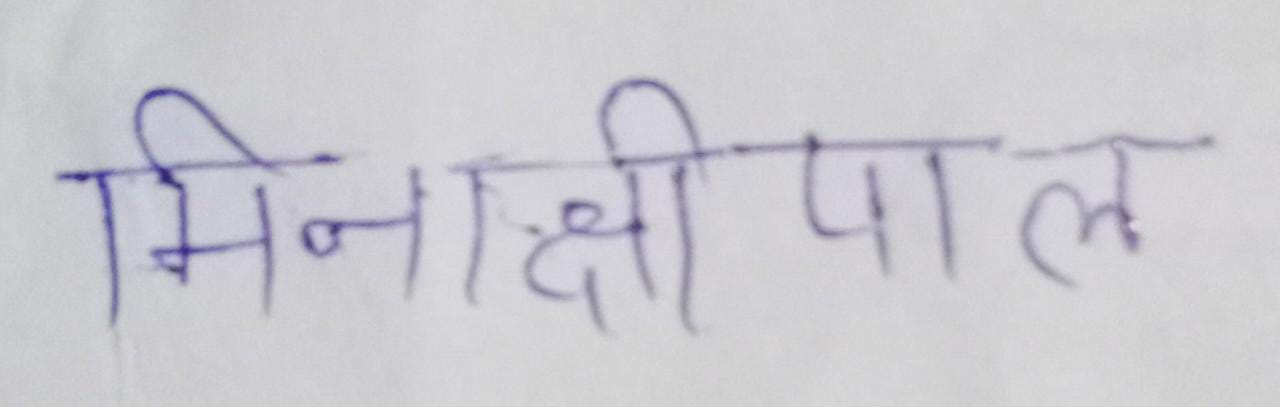 मिनाक्षी पाल